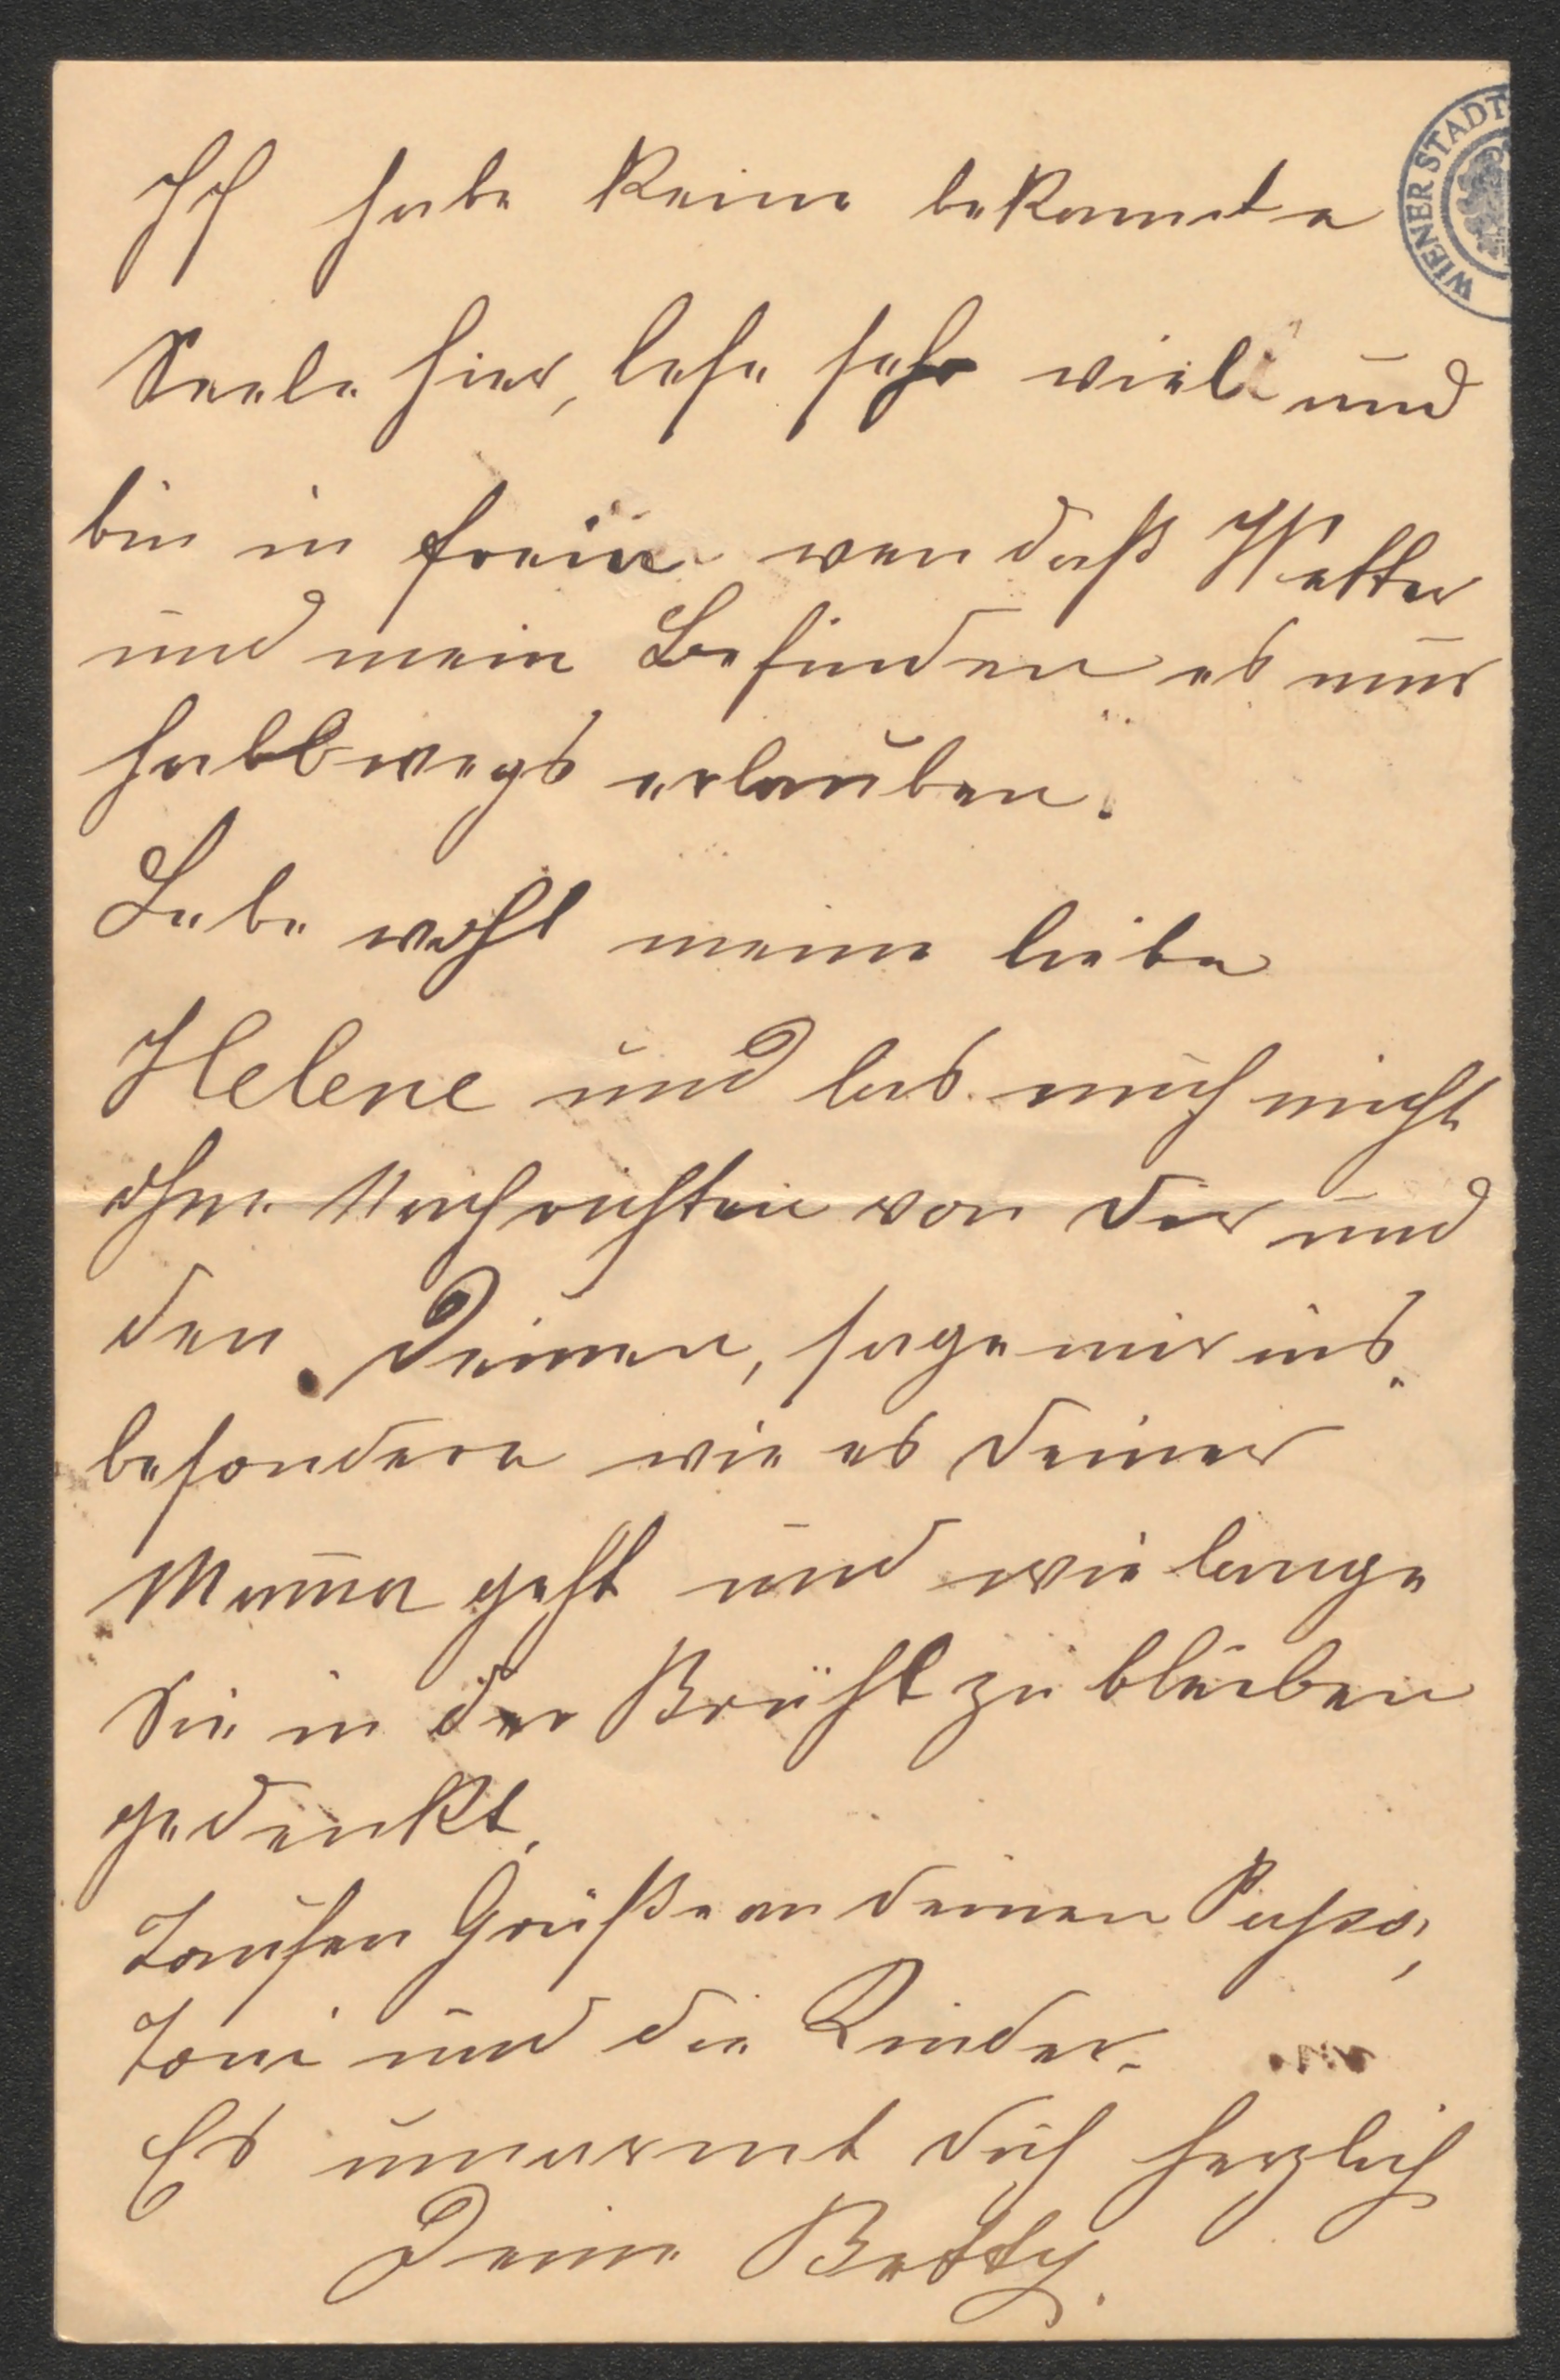 WIENER STADT
Ich habe keine bekannte
Seele hier, lese sehr viel und
bin in freien wen daß Wetter
und mein Befinden es nur
halbwegs erlauben.
Lebe wohl meine liebe
Helene und las mich nicht
ohne Nachrichten von dir und
den Deinen, sage mir ins-
besondere wie es deiner
Mama geht und wie lange
Sie in der Brühl zu bleiben
gedenkt.
Tausen Grüße an deinen Papa,
Toni und die Kinder.
Es umarmt dich herzlich
Deine Betty.